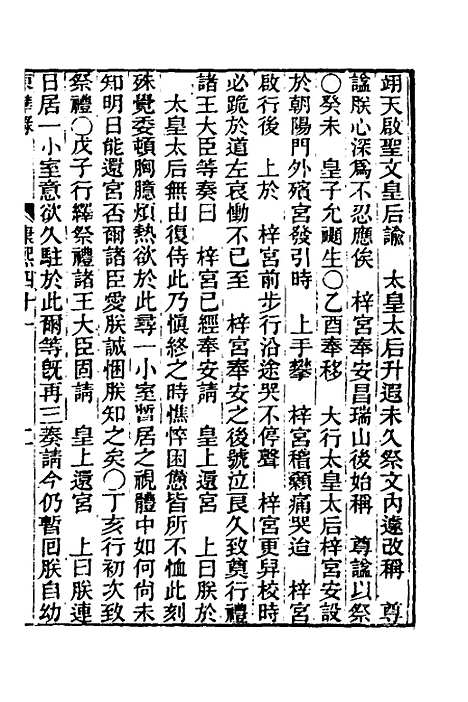 翊天啟聖文皇后諭　太皇太后升遐未久祭文內遽改稱　尊
諡朕心深爲不忍應俟　梓宮奉安昌瑞山後始稱　尊諡以祭
〇癸未　皇子允禵生〇乙酉奉移　大行太皇太后梓宮安設
於朝陽門外殯宮發引時　上手攀　梓宮稽顙痛哭迨　梓宮
啟行後　上於　梓宮前步行沿途哭不停聲　梓宮更舁校時
必跪於道左哀慟不已至　梓宮奉安之後號泣良久致奠行禮
諸王大臣等奏曰　梓宮已經奉安請　皇上還宮　上曰朕於
太皇太后無由復侍此乃愼終之時憔悴困憊皆所不恤此刻
殊覺委頓胸臆煩熱欲於此尋一小室暫居之視體中如何尚未
知明日能還宮否爾諸臣愛朕誠悃朕知之矣〇丁亥行初次致
祭禮〇戊子行繹祭禮諸王大臣固請　皇上還宮　上曰朕連
日居一小室意欲久駐於此爾等旣再三奏請今仍暫回朕自幼
東華錄　康熙四十一